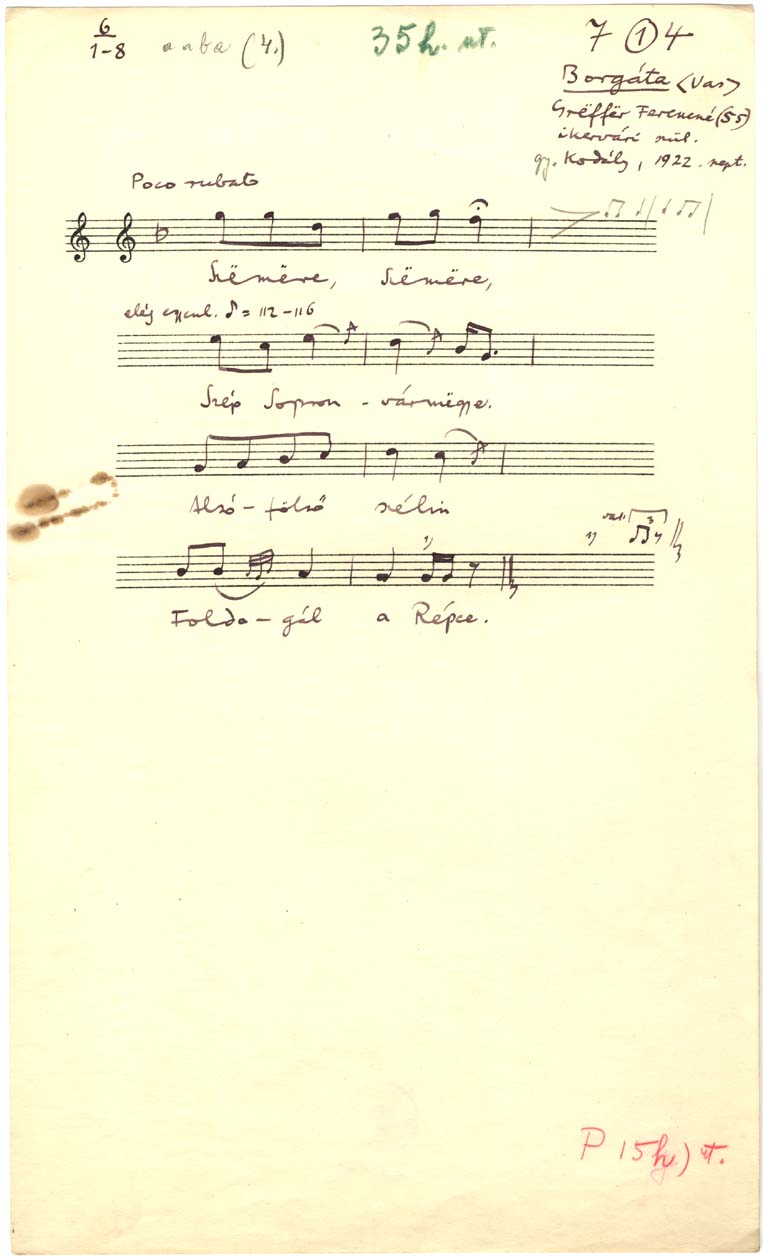 6
1-8
a a b a (4.)
35h. ut.
7 ① 4
Borgáta (Vas)
Grëffër Ferencné (55)
ikervári szül.
gy. Kodály, 1922. szept.
Poco rubato
Szëmëre, Szëmëre,
elég egyenl. ♪ = 112-116
Szép Sopron - vármëgye.
Alsó - fölső szélin
1) vált 3
1)
Foldo - gál a Répce.
P 15 hj) ut.